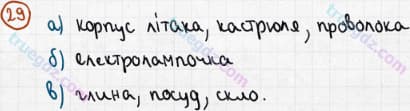 29 а) корпус літака, кастрюля, проволока
б) електролампочка
в) глина, посуд, скло.